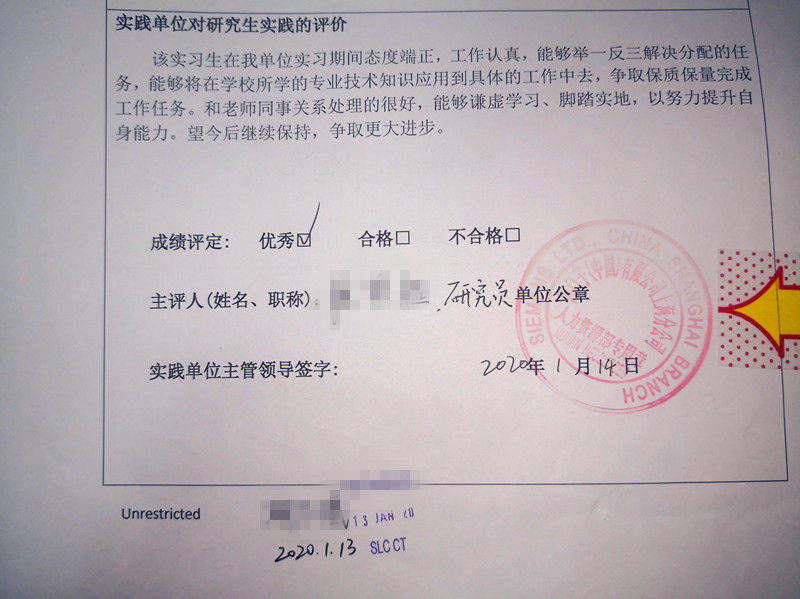 实践单位对研究生实践的评价
该实习生在我单位实习期间态度端正，工作认真，能够举一反三解决分配的任
务，能够将在学校所学的专业技术知识应用到具体的工作中去，争取保质保量完成
工作任务。和老师同事关系处理的很好，能够谦虚学习、脚踏实地，以努力提升自
身能力。望今后继续保持，争取更大进步。
成绩评定： 优秀☑ 合格☐ 不合格☐
主评人(姓名、职称)： 研究员 单位公章
实践单位主管领导签字： 2020年 1 月 14 日
LTD., CHINA SHANGHAI BRANCH
(中国)有限公司上海分公司
人力资源部专用章
Unrestricted
13 JAN 20
2020.1.13 SLC CT